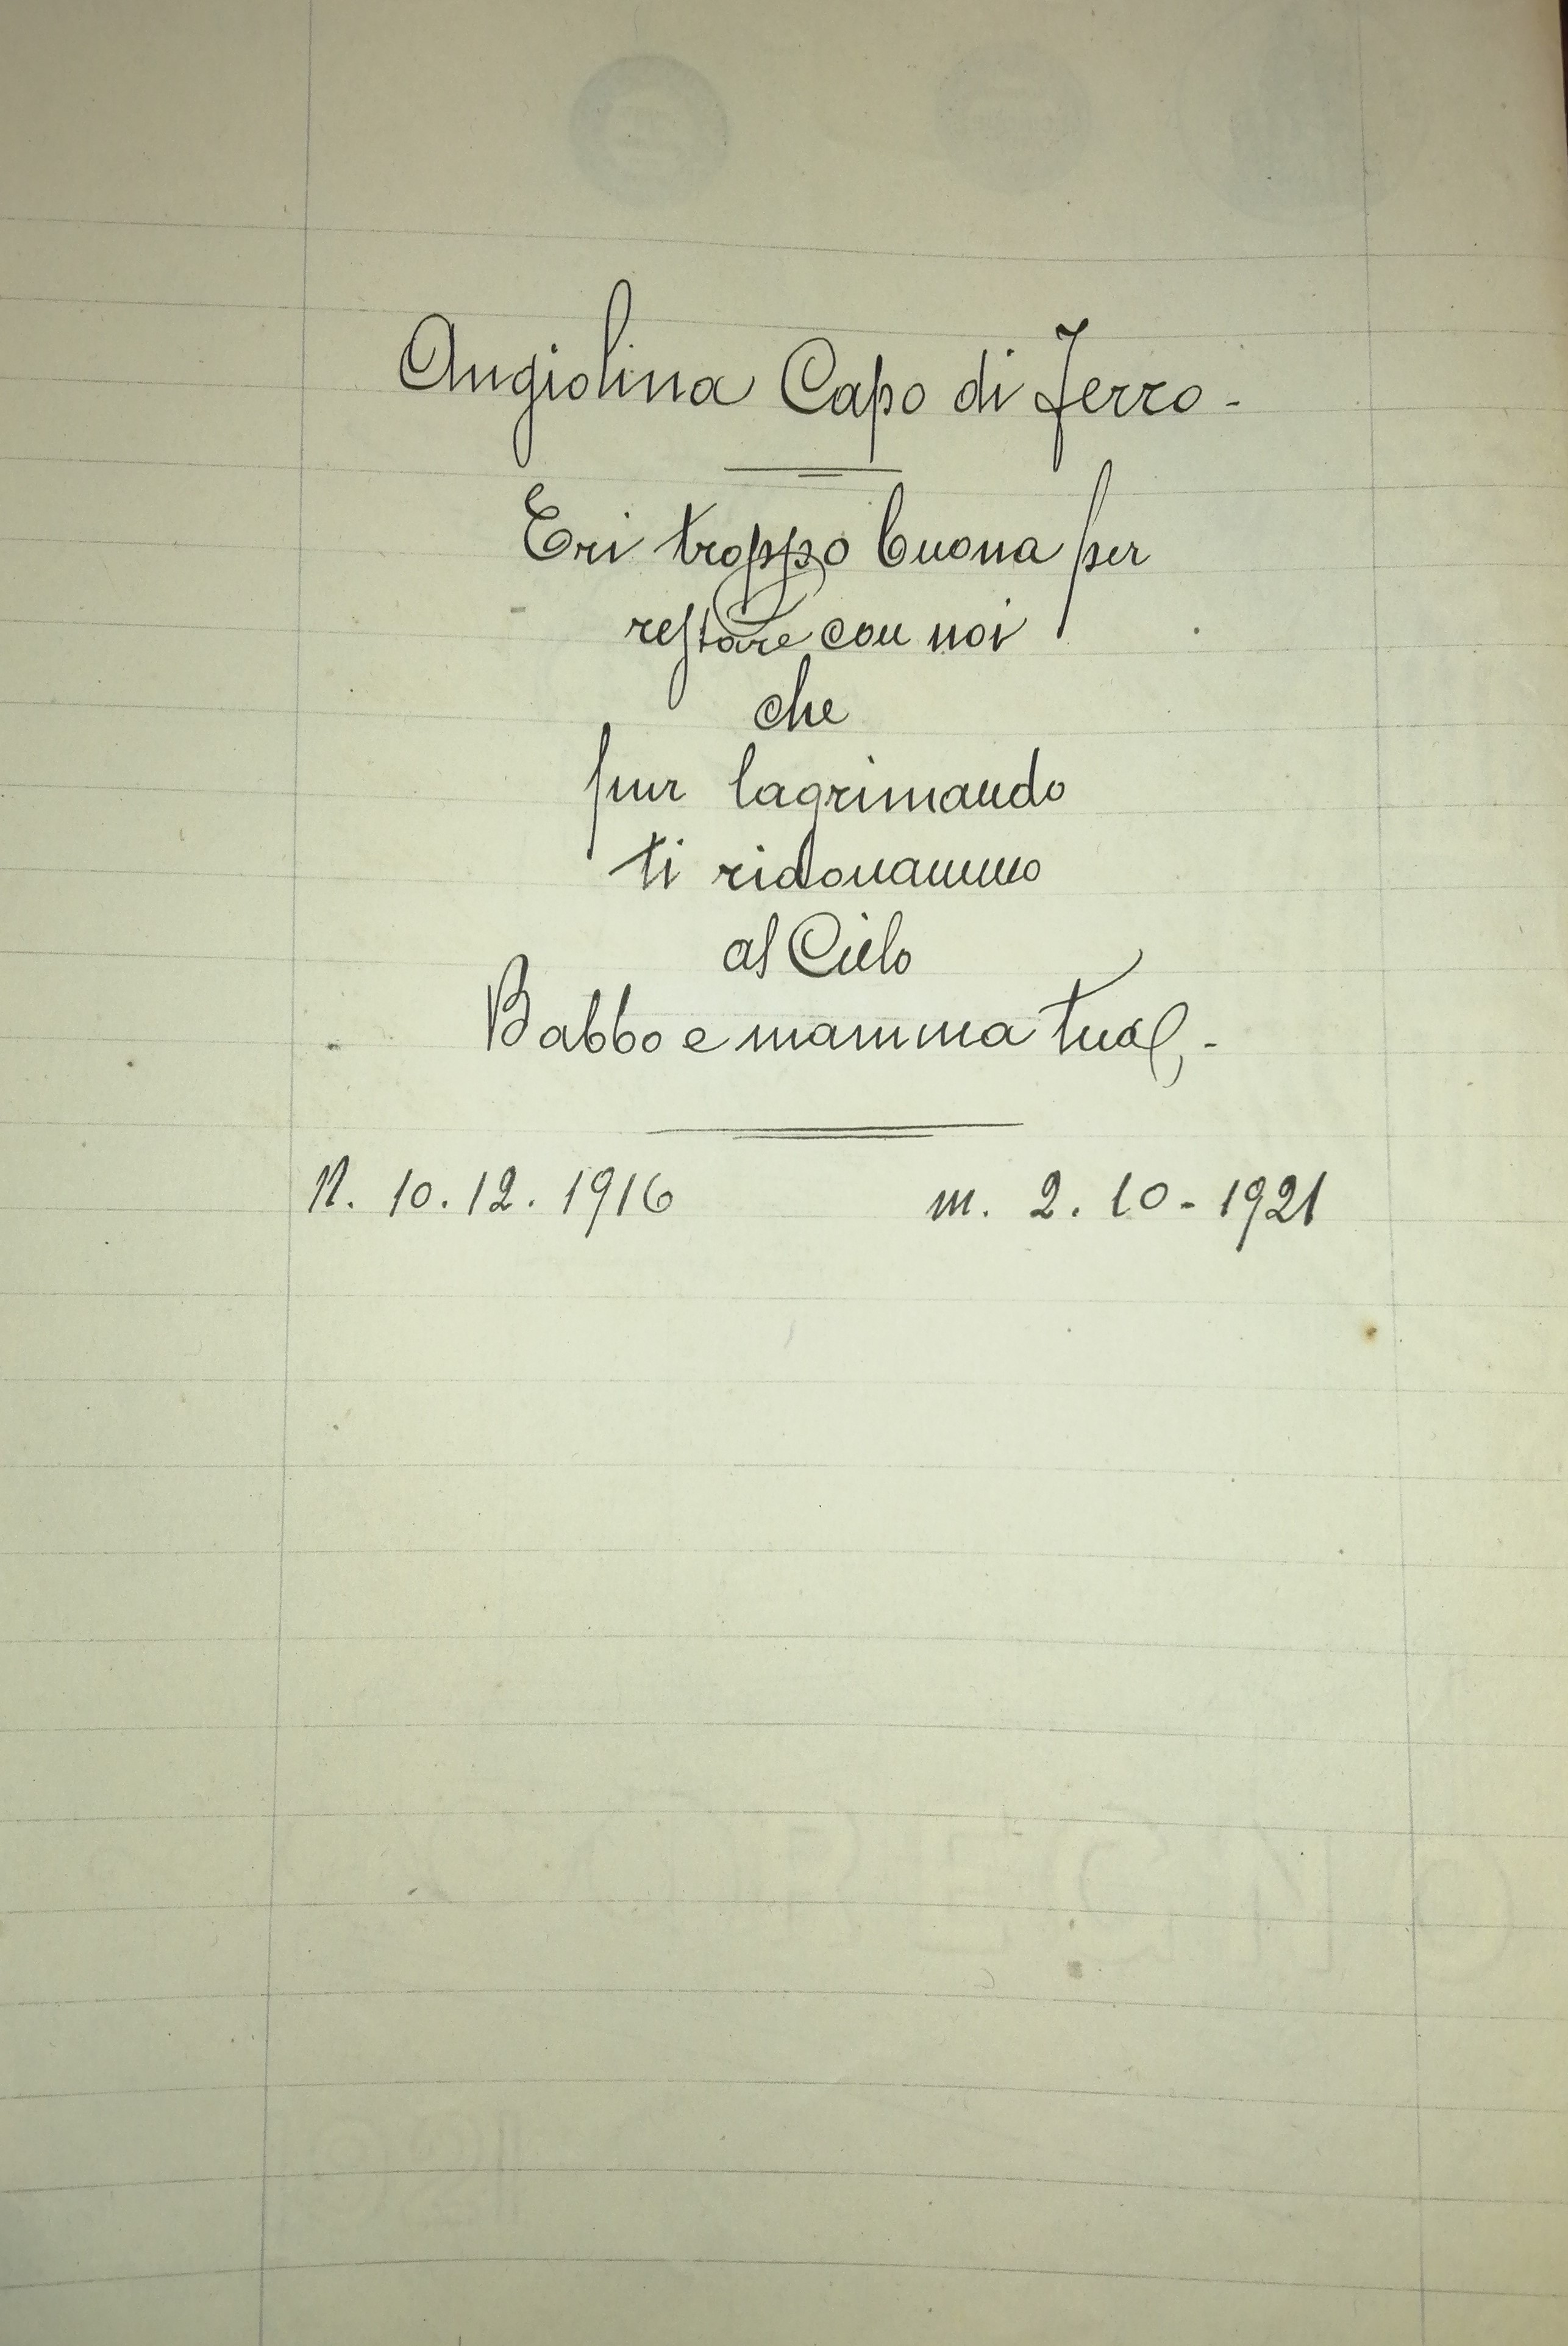 Angiolina Capo di Ferro -
Eri troppo buona per
restare con noi
che
pur lagrimando
ti ridonammo
al Cielo
Babbo e mamma tua, -
N. 10.12.1916 m. 2.10-1921